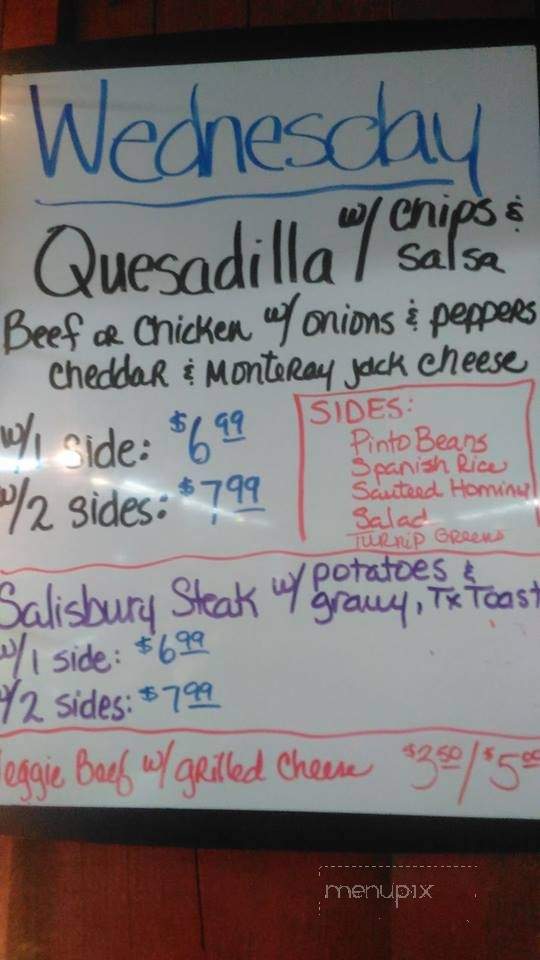 Wednesday
Quesadilla w/ chips &
salsa
Beef or Chicken w/ onions & peppers
cheddar & Monteray jack cheese
w/1 side: $6.99
w/2 sides: $7.99
SIDES:
Pinto Beans
Spanish Rice
Sauteed Hominy
Salad
Turnip Greens
Salisbury Steak w/ potatoes &
gravy, Tx Toast
w/1 side: $6.99
w/2 sides: $7.99
eggie Beef w/ grilled cheese $3.50/$5.00
menupix